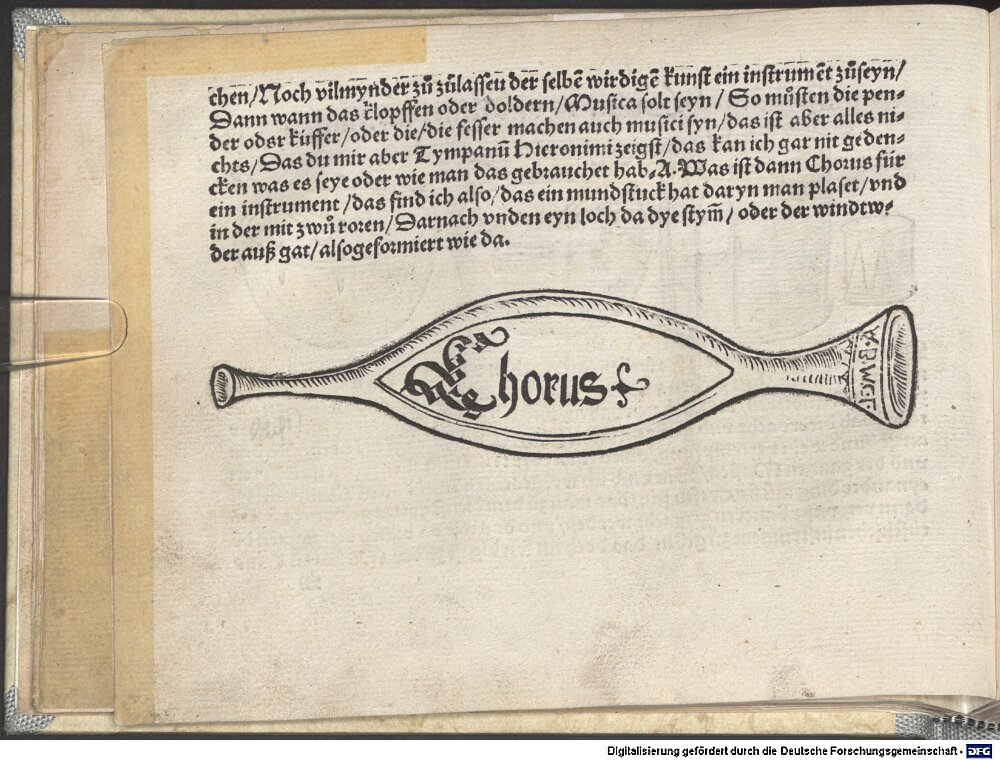 chen/Noch vilmynder zů zůlassen der selbē wirdigē kunst ein instrumēt zůseyn/
Dann wann das klopffen oder boldern/Musica solt seyn/ So můsten die pen⸗
der odsr küffer/oder die/die fesser machen auch musici syn/das ist aber alles ni⸗
chts/Das du mir aber Tympanū Hieronimi zeigst/das kan ich gar nit geden⸗
cken was es seye oder wie man das gebrauchet hab⸗A⸗Was ist dann Chorus für
ein instrument/das find ich also/das ein mundstuck hat daryn man plaset/vnd
in der mit zwů roren/Darnach vnden eyn loch da dye stym̄/ oder der windtw⸗
der auß gat/alsogeformiert wie da.
Chorus
Digitalisierung gefördert durch die Deutsche Forschungsgemeinschaft - DFG